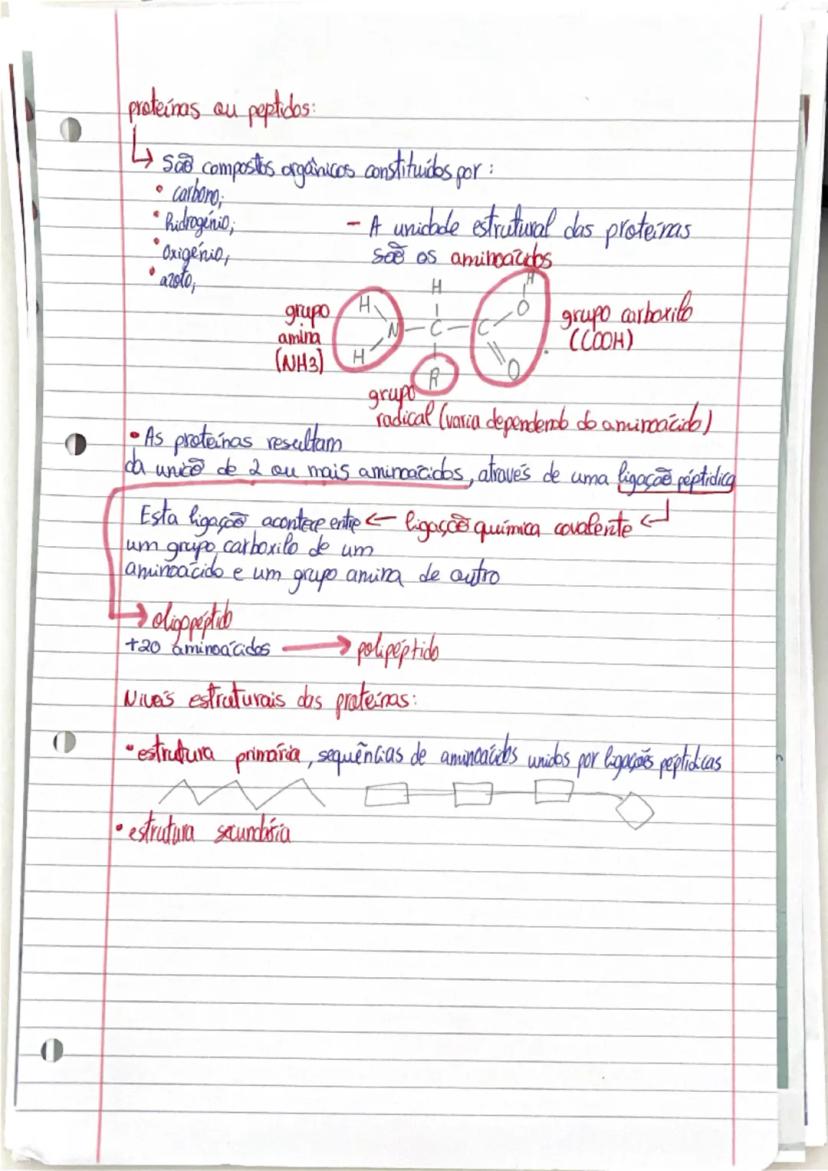 proteínas ou peptidos:
↳ São compostos orgânicos constituídos por:
• carbono;
• hidrogénio;
• oxigénio;
• azoto;
- A unidade estrutural das proteínas
são os aminoácidos
grupo
amina
(NH3)
H
H
N
H
C
R
C
O
H
O
grupo carboxilo
(COOH)
grupo
radical (varia dependendo do aminoácido)
• As proteínas resultam
da união de 2 ou mais aminoácidos, através de uma ligação péptidica
Esta ligação acontece entre ← ligação química covalente ↵
um grupo carboxilo de um
aminoácido e um grupo amina de outro
→ oligopéptido
+20 aminoácidos → polipéptido
Niveis estruturais das proteínas:
• estrutura primária, sequências de aminoácidos unidos por ligações péptidicas
• estrutura secundária